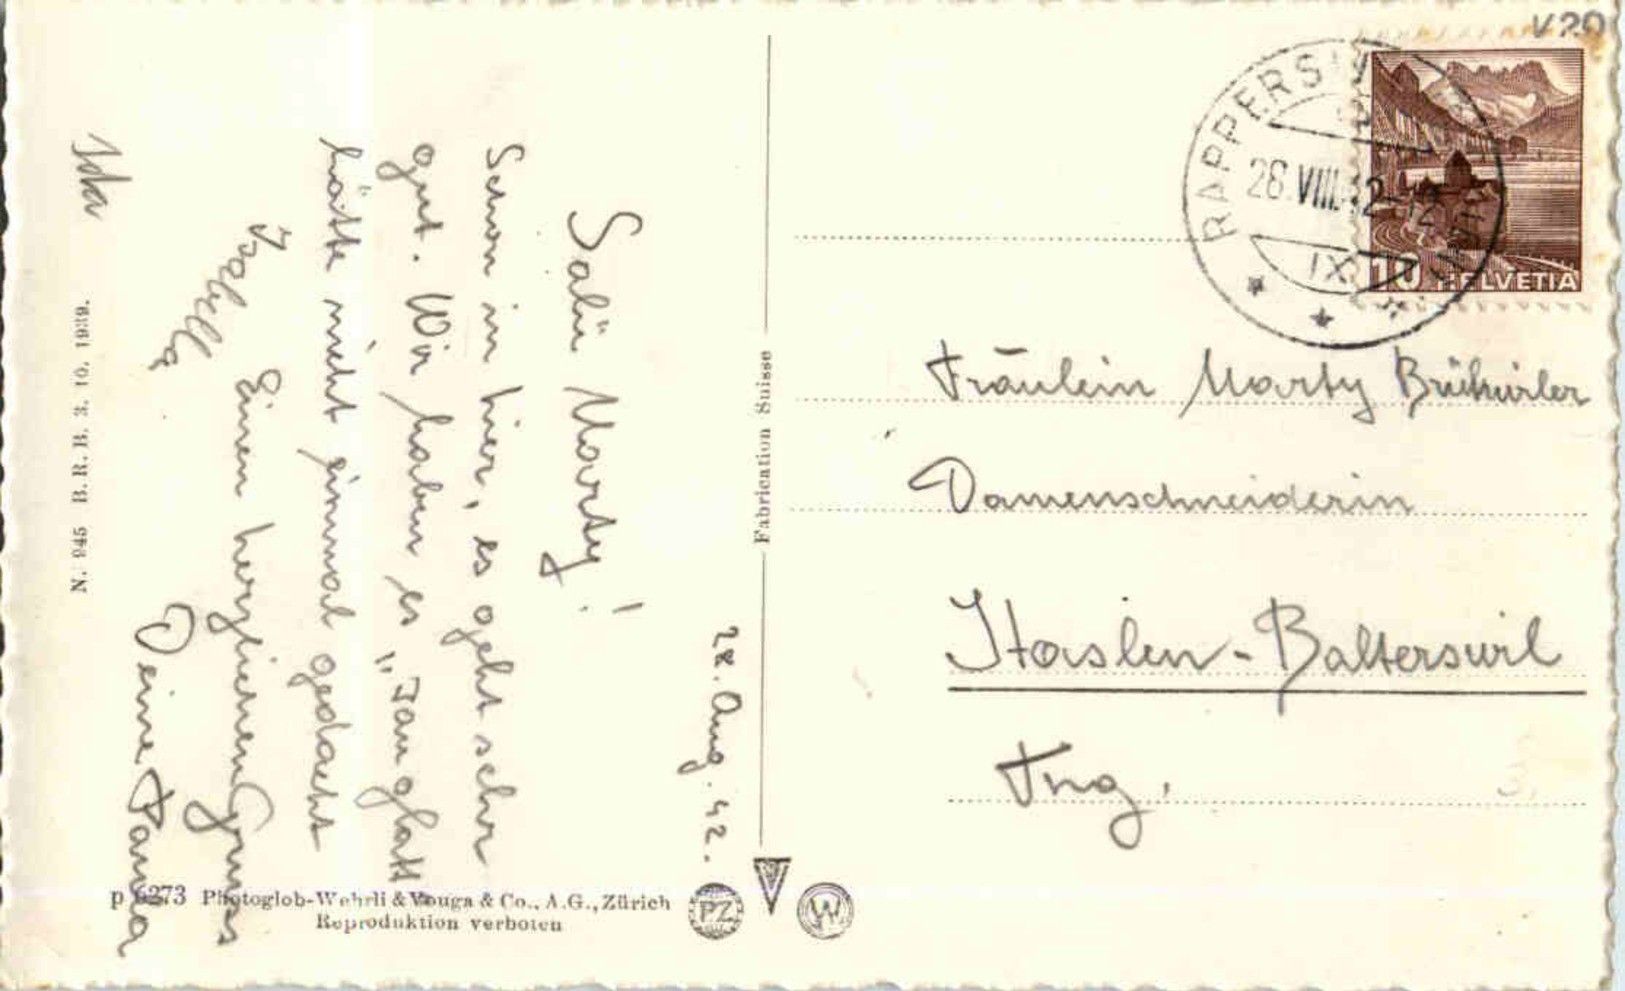 28. Aug. 42.
Salü Marty!
Schon in hier, es geht sehr
gut. Wir haben es glatt
hätte nicht einmal gedacht
Einen herzlichen Gruss
Deine
Isabella
Ida
N. 945 B.R.B. 3. 10. 1939.
p 6273 Photoglob-Wehrli & Vouga & Co., A.G., Zürich
Reproduktion verboten
PZ
W
Fabrication Suisse
V 20
RAPPERSWIL
26.VIII.42-12
IX
10 HELVETIA
Fräulein Marty Brühwiler
Damenschneiderin
Haslen-Balterswil
Thg.